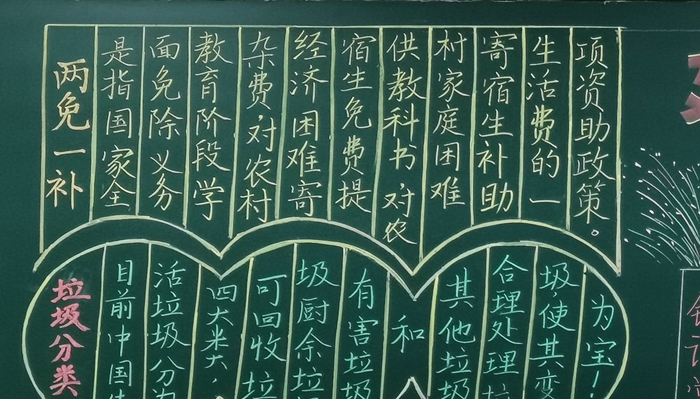 两免一补
是指国家全
面免除义务
教育阶段学
杂费,对农村
经济困难寄
宿生免费提
供教科书,对农
村家庭困难
寄宿生补助
生活费的一
项资助政策。
垃圾分类
目前中国
活垃圾分
四大类,
可回收垃
圾厨余垃
有害垃圾
和
其他垃圾
合理处理垃
圾,使其变
为宝!